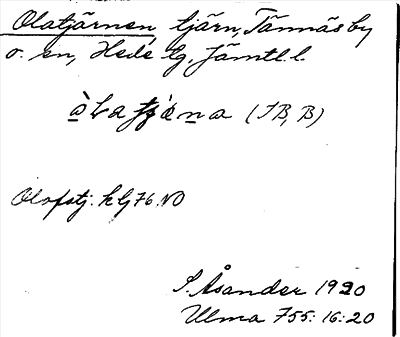 Olatjärnen, tjärn, Tännäs by
o. sn, Hede tg, Jämtl. l.
(TB, B)
Olofstj. kbj 76. NO
S. Åsander 1920
Ulma 755: 16: 20